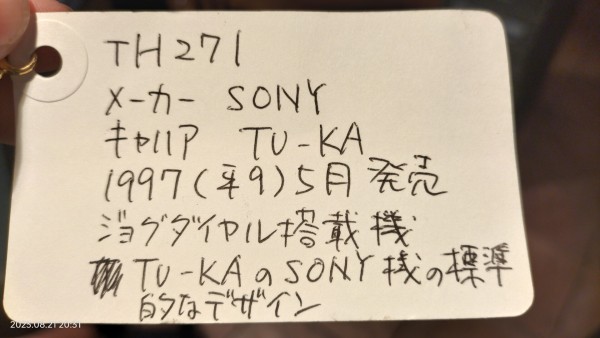 TH271
メーカー SONY
キャリア TU-KA
1997(平9)5月 発売
ジョグダイヤル搭載機
TU-KAのSONY機の標準
的なデザイン
2025.08.21 20:51